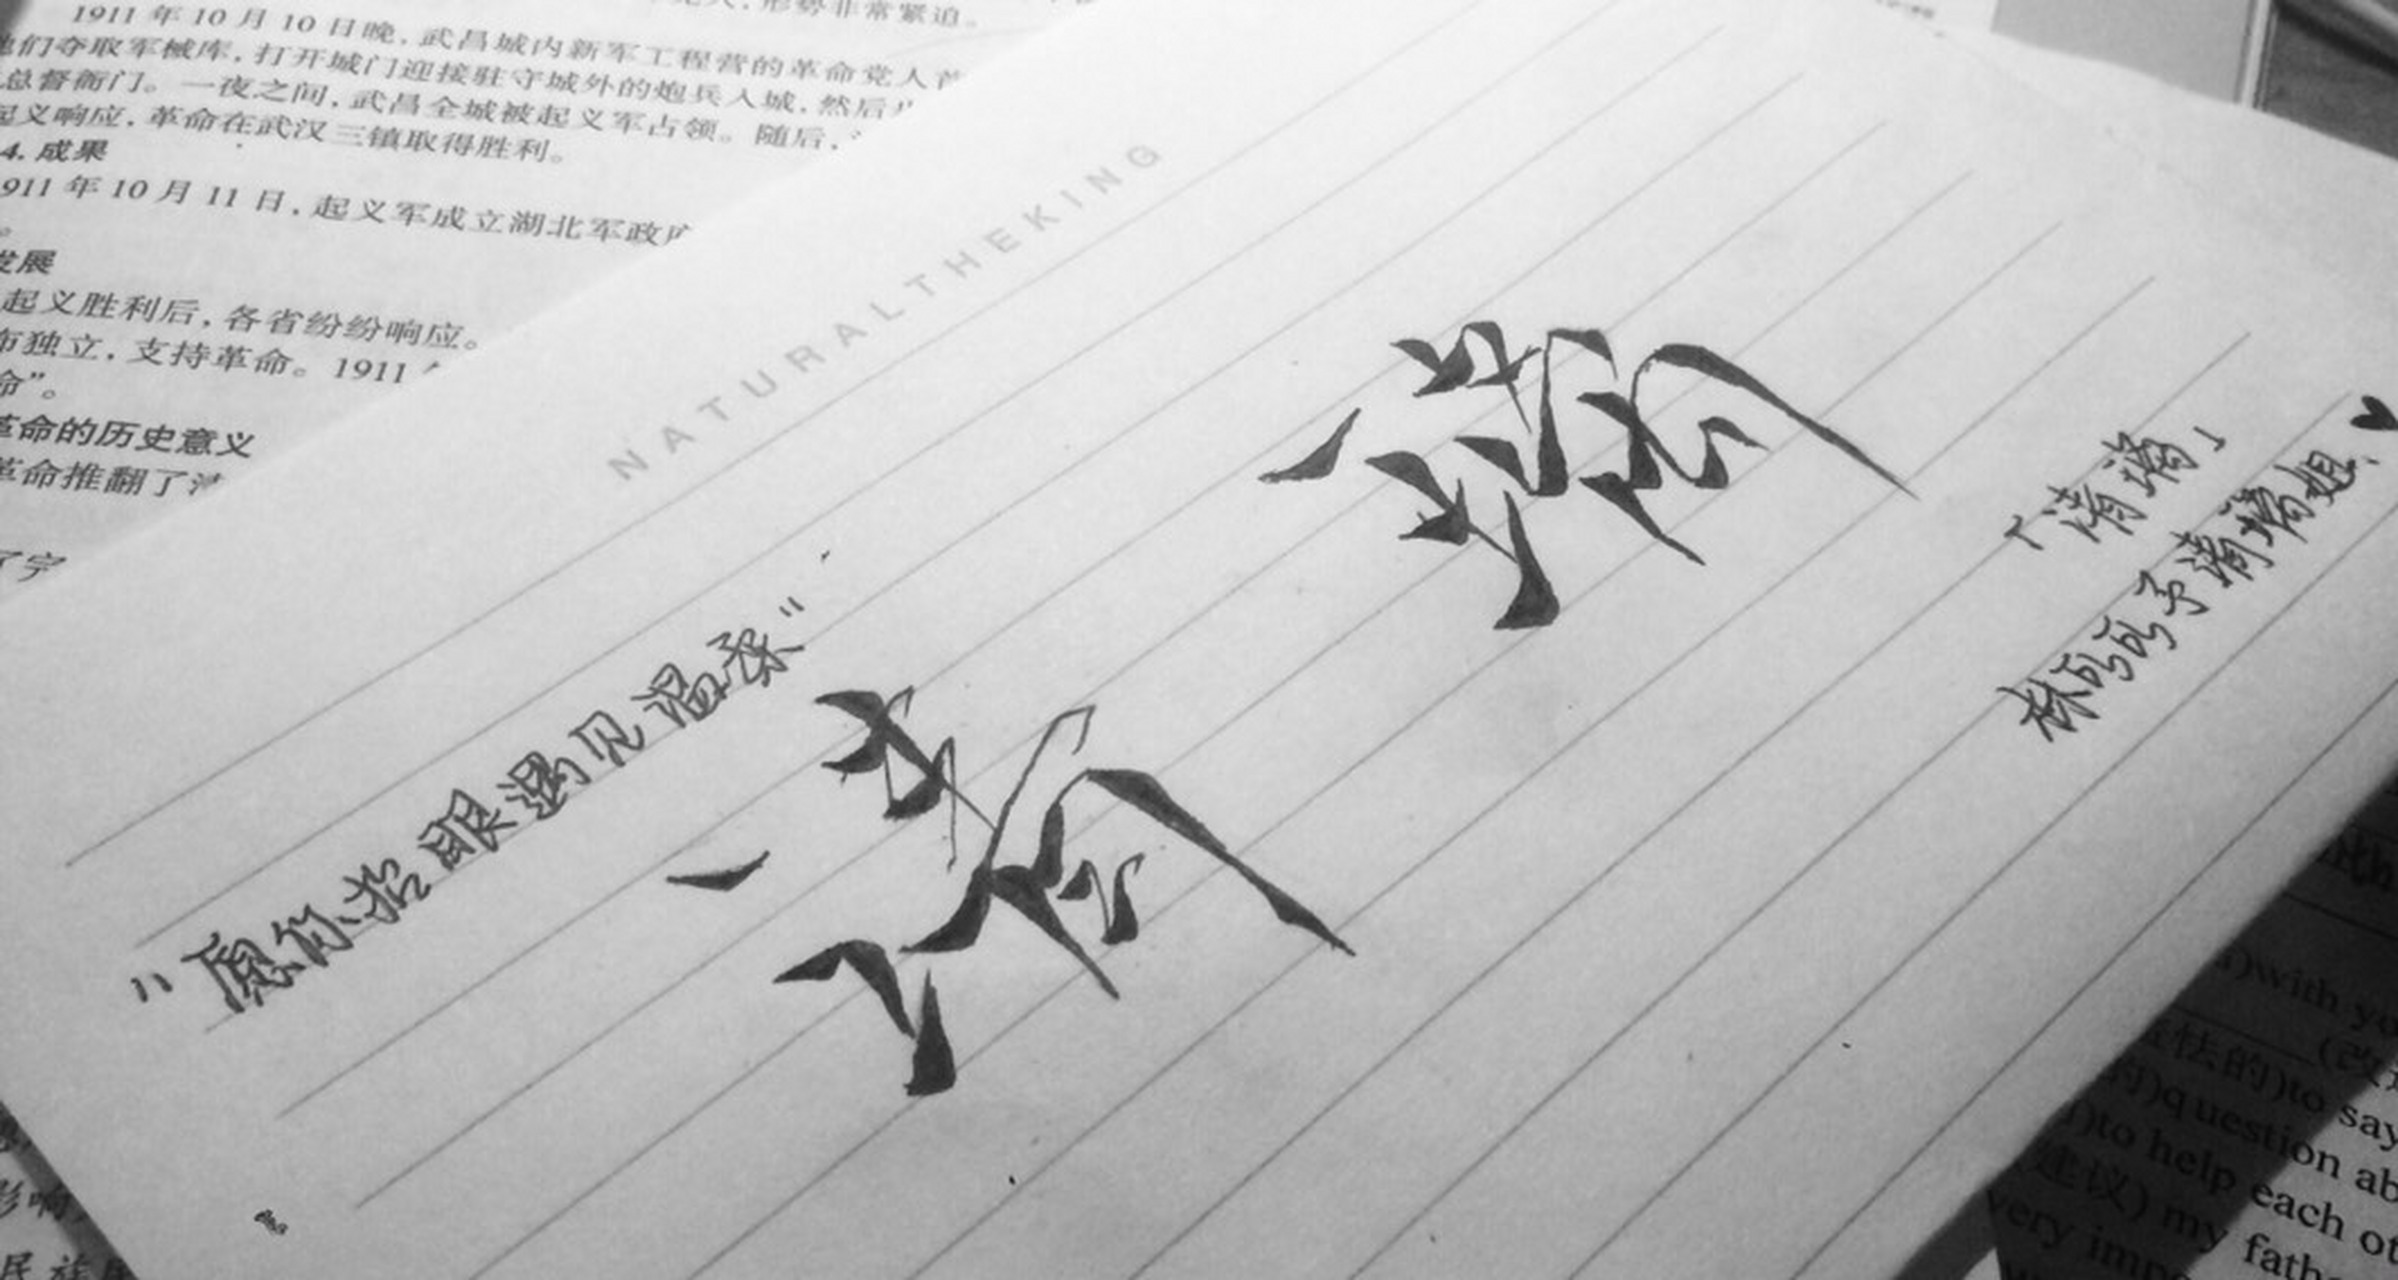 1911 年 10 月 10 日晚，武昌城内新军工程营的革命党人
他们夺取军械库，打开城门迎接驻守城外的炮兵入城，然后
总督衙门。一夜之间，武昌全城被起义军占领。随后，
起义响应，革命在武汉三镇取得胜利。
4. 成果
1911 年 10 月 11 日，起义军成立湖北军政府
发展
起义胜利后，各省纷纷响应。
布独立，支持革命。1911
命”。
革命的历史意义
革命推翻了
NATURALTHEKING
"愿你抬眼遇见温柔"
清璃
「清璃」
林鸥鸥予清璃姐、♥
with you
(改
怯的)to say
)question ab
)to help each ot
建议) my fath
very impo
影响
民族